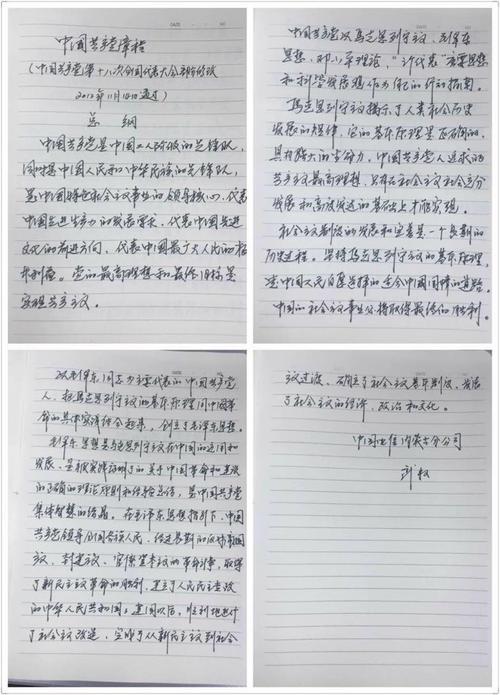 中国共产党章程
(中国共产党第十八次全国代表大会部分修改
2012年11月14日通过)
总纲
中国共产党是中国工人阶级的先锋队,
同时是中国人民和中华民族的先锋队,
是中国特色社会主义事业的领导核心,代表
中国先进生产力的发展要求,代表中国先进
文化的前进方向,代表中国最广大人民的根
本利益。党的最高理想和最终目标是
实现共产主义。
中国共产党以马克思列宁主义、毛泽东
思想、邓小平理论、"三个代表"重要思想
和科学发展观作为自己的行动指南。
马克思列宁主义揭示了人类社会历史
发展的规律,它的基本原理是正确的,
具有强大的生命力。中国共产党人追求的
共产主义最高理想,只有在社会主义社会充分
发展和高度发达的基础上才能实现。
社会主义制度的发展和完善是一个长期的
历史过程。坚持马克思列宁主义的基本原理,
走中国人民自愿选择的适合中国国情的道路,
中国的社会主义事业必将取得最终的胜利。
以毛泽东同志为主要代表的中国共产党
人,把马克思列宁主义的基本原理同中国革
命的具体实践结合起来,创立了毛泽东思想。
毛泽东思想是马克思列宁主义在中国的运用和
发展,是被实践证明了的关于中国革命和建设
的正确的理论原则和经验总结,是中国共产党
集体智慧的结晶。在毛泽东思想指引下,中国
共产党领导全国各族人民,经过长期的反对帝国
主义、封建主义、官僚资本主义的革命斗争,取得
了新民主主义革命的胜利,建立了人民民主专政
的中华人民共和国;建国以后,顺利地进行
了社会主义改造,完成了从新民主主义到社会
主义过渡,确立了社会主义基本制度,发展
了社会主义的经济、政治和文化。
中国电信内蒙古分公司